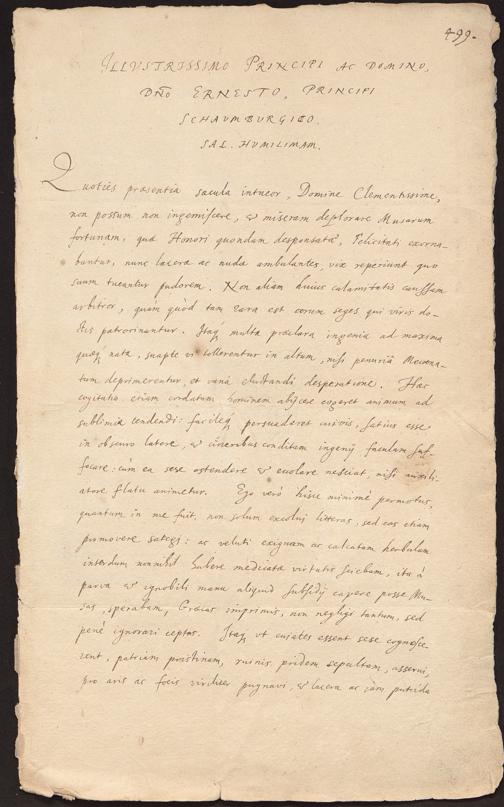 499.
ILLVSTRISSIMO PRINCIPI AC DOMINO,
DNO ERNESTO, PRINCIPI
SCHAVMBURGICO.
SAL. HVMILIMAM.
Quoties præsentia sæcula intueor, Domine Clementissime,
non possum non ingemiscere, & miseram deplorare Musarum
fortunam, quæ Honori quondam desponsatæ, Felicitati exorna-
buntur, nunc lacera ac nuda ambulantes, vix reperiunt quo
suum tueantur pudorem. Non aliam huius calamitatis caussam
arbitror, quàm quòd tam rara est eorum seges qui viris do-
ctis patrocinantur. Itaq multa præclara ingenia ad maxima
quæq nata, suapte vi tollerentur in altum, nisi penuriâ Mecœna-
tum deprimerentur, et vanâ eluctandi desperatione. Hæc
cogitatio, etiam cordatum hominem abijcere cogeret animum ad
sublimia tendendi: facileq persuaderet cuivis, satius esse
in obscuro latere, & cineribus conditam ingenij faculam suf-
focare: cùm ea sese ostendere & evolare nesciat, nisi auxili-
atore flatu animetur. Ego verò hisce minimè permotus,
quantum in me fuit, non solum excolui litteras, sed eas etiam
promovere sategi: ac veluti exiguam ac calcatam herbulam
interdum nonnihil habere mediatæ virtutis sciebam, ita à
parva & ignobili manu aliquid subsidij capere posse Mu-
sas, sperabam, Græcas imprimis, non negligi tantum, sed
penè ignorari ceptas. Itaq vt cuiates essent sese cognosce-
rent, patriam pristinam, ruinis pridem sepultam, asserui,
pro aris ac focis viriliter pugnavi, & lacera ac iàm putrida